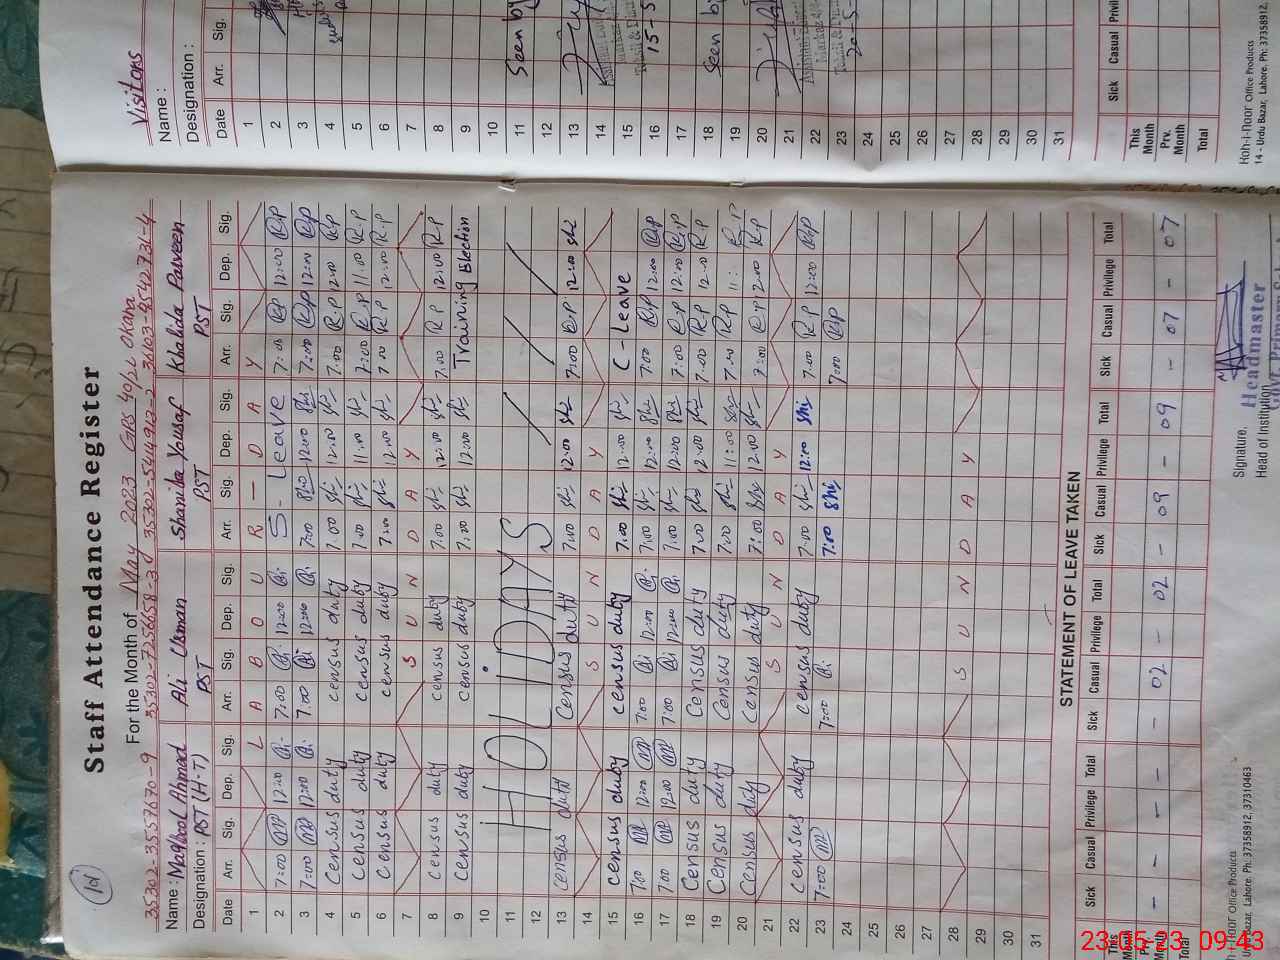 101
Staff Attendance Register
For the Month of May 2023 GPS 40/2L Okara
35302-3557670-9 35302-7256658-3 35302-5449412-2 36103-9542731-4
Name : Maqbool Ahmad Ali Usman Shanila Yousaf Khalida Parveen
Designation : PST (H-T) PST PST PST
Date Arr. Sig. Dep. Sig. Arr. Sig. Dep. Sig. Arr. Sig. Dep. Sig. Arr. Sig. Dep. Sig.
1 L A B O U R — D A Y
2 7:00 12:00 7:00 12:00 S- Leave 7:00 R.P 12:00 R.P
3 7:00 12:00 7:00 12:00 7:00 12:00 7:00 R.P 12:00 R.P
4 Census duty census duty 7.00 12:00 7.00 R.P 12:00 R.P
5 Census duty census duty 7:00 11:00 7:00 R.P 11:00 R.P
6 Census duty census duty 7:00 12:00 7:00 R.P 12:00 R.P
7 S U N D A Y
8 Census duty census duty 7:00 12:00 7:00 R.P 12:00 R.P
9 Census duty census duty 7:00 12:00 Training Election
10
11 HOLIDAYS
12
13 census duty Census duty 7:00 12:00 7:00 R.P 12:00
14 S U N D A Y
15 Census duty census duty 7:00 12:00 C- Leave
16 7:00 12:00 7:00 12:00 7:00 12:00 7:00 R.P 12:00 R.P
17 7:00 12:00 7:00 12:00 7:00 12:00 7:00 R.P 12:00 R.P
18 Census duty Census duty 7:00 12:00 7:00 R.P 12:00 R.P
19 Census duty Census duty 7:00 11:00 7:00 R.P 11: R.P
20 Census duty Census duty 7:00 12:00 7:00 R.P 12:00 R.P
21 S U N D A Y
22 census duty census duty 7:00 12:00 7:00 R.P 12:00 R.P
23 7:00 7:00 7:00 7:00 R.P
24
25
26
27
28 S U N D A Y
29
30
31
STATEMENT OF LEAVE TAKEN
Sick Casual Privilege Total Sick Casual Privilege Total Sick Casual Privilege Total Sick Casual Privilege Total
This Month
Prv. Month - - - - - 02 - 02 - 09 - 09 - 07 - 07
Total
Signature,
Head of Institution
Headmaster
Office Products
Bazar, Lahore. Ph: 37358912, 37310463
Visitors
Name :
Designation :
Date Arr. Sig.
1
2
3
4
5
6
7
8
9
10
11 Seen by
12
13
14
15
16 15-5
17
18 Seen by
19
20
21
22
23 20-5-
24
25
26
27
28
29
30
31
Sick Casual Privil
This Month
Prv. Month
Total
Koh-i-Noor Office Products
14 - Urdu Bazar, Lahore. Ph: 37358912,
23-05-23 09:43